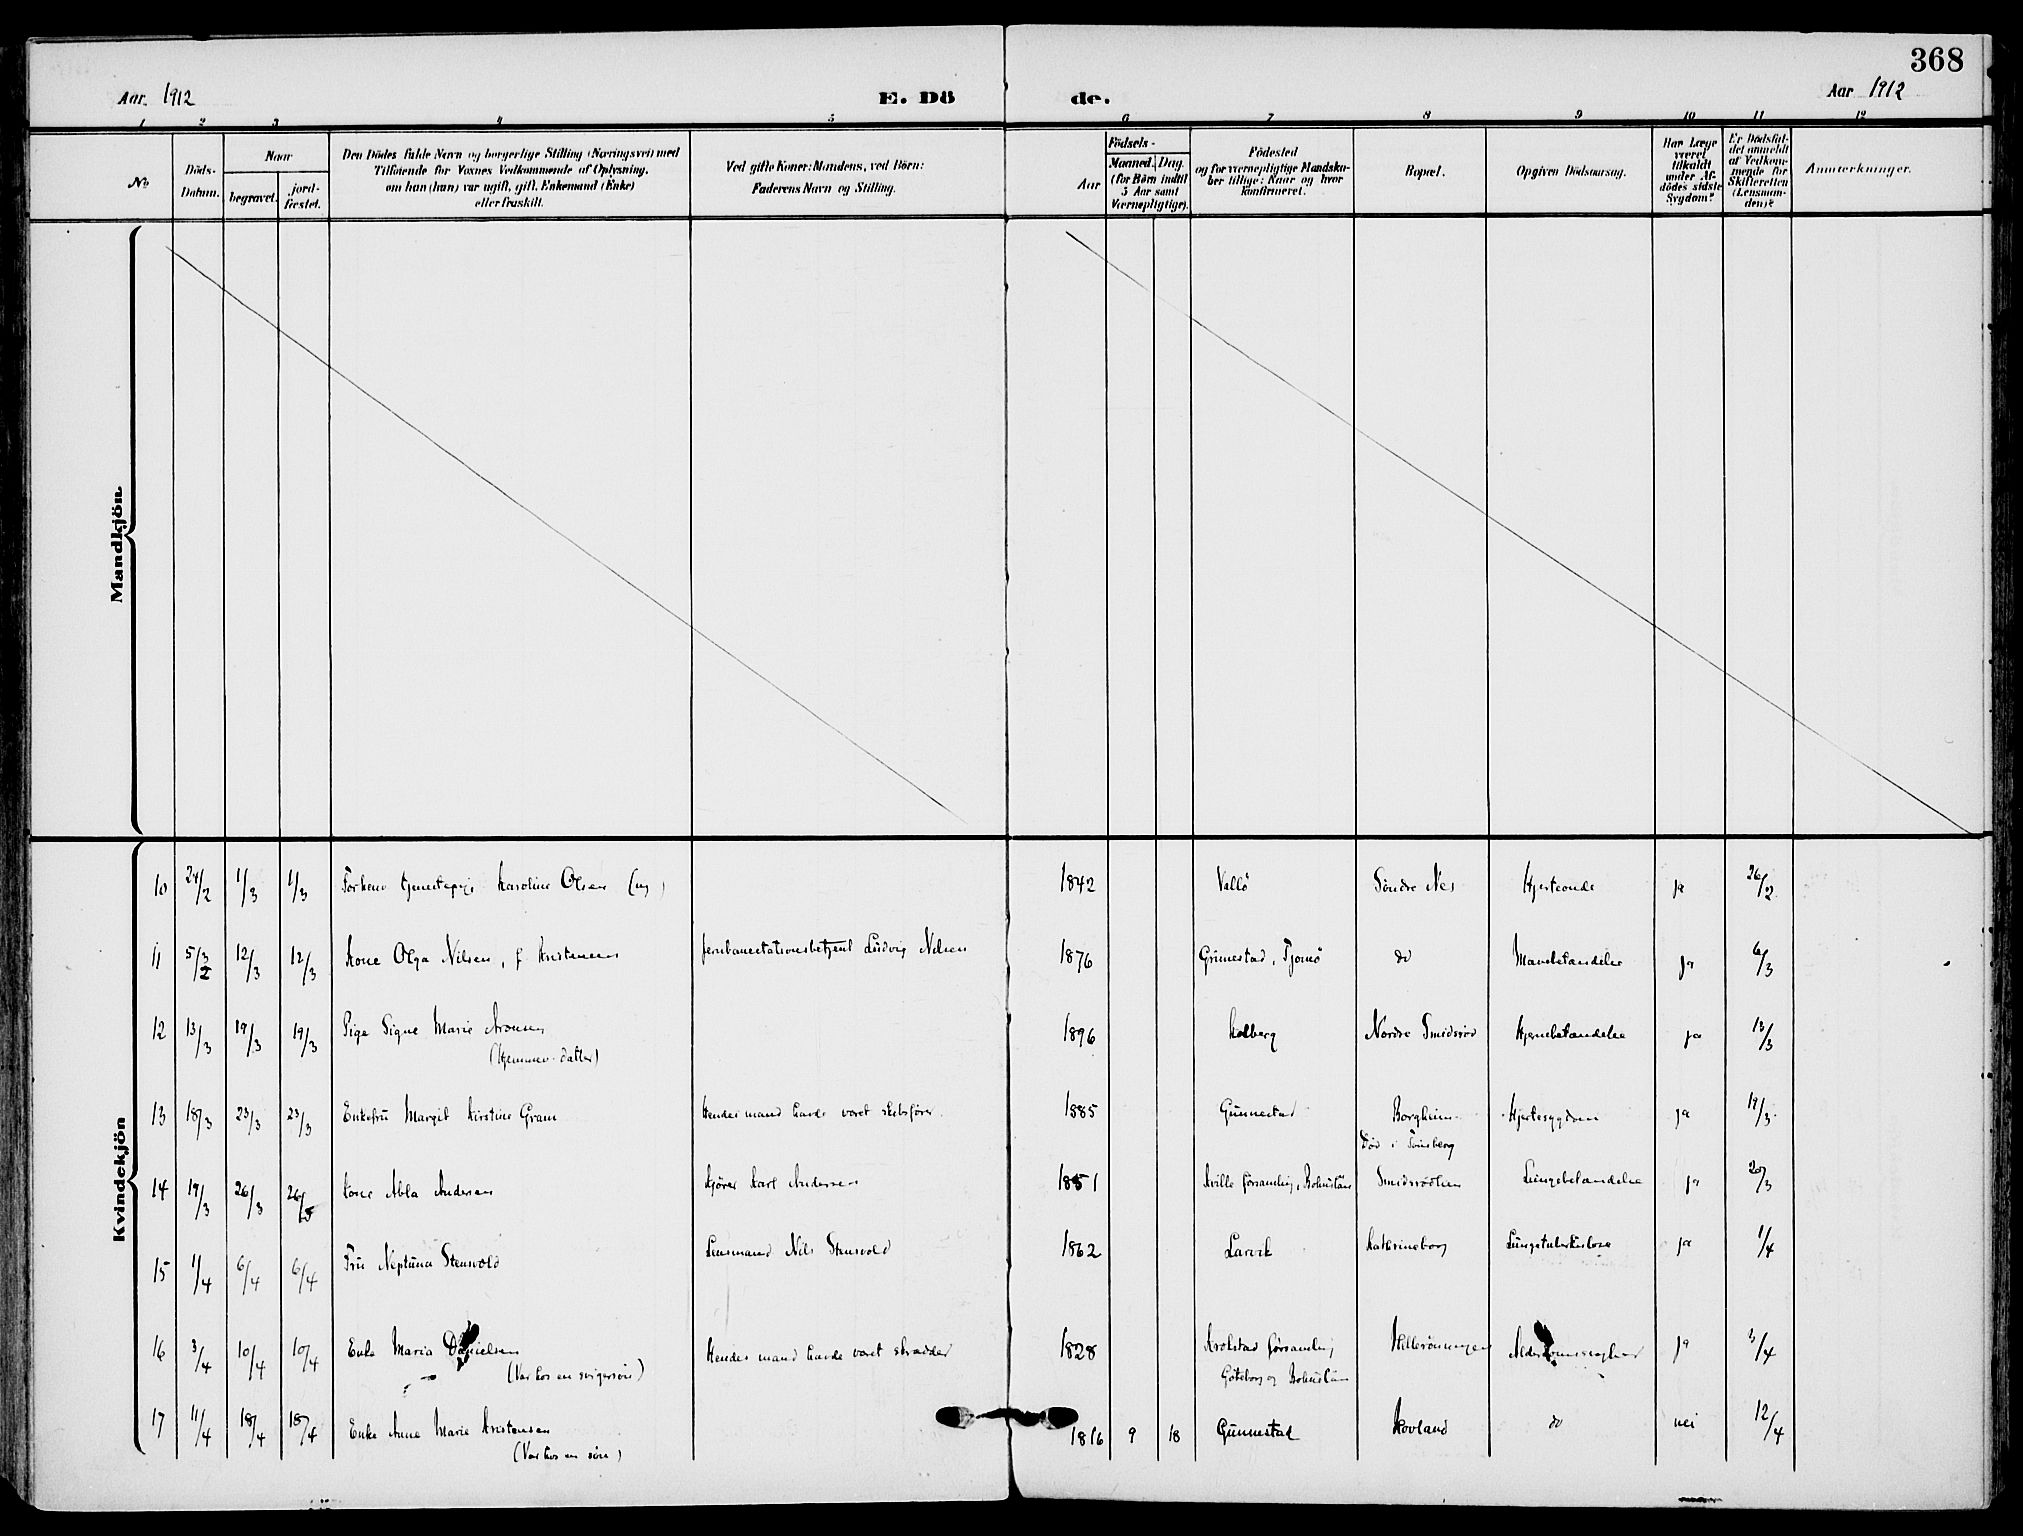 368
Aar. 1912
E. Dö
de.
Aar 1912
1 2 3 4 5 6 7 8 9 10 11 12
No
Döds-
Datum.
Naar
begravet.
jord-
fæstet.
Den Dödes fulde Navn og borgerlige Stilling (Næringsvei) med
Tilföiende for Voxnes Vedkommende af Oplysning,
om han (hun) var ugift, gift, Enkemand (Enke)
eller fraskilt.
Ved gifte Koner: Mandens, ved Börn:
Faderens Navn og Stilling.
Födsels-
Aar
Maaned. Dag.
(for Börn indtil
5 Aar samt
Værnepligtige).
Födested
og for værnepligtige Mandska-
ber tillige: Naar og hvor
konfirmeret.
Bopæl.
Opgiven Dödsaarsag.
Har Læge
været
tilkaldt
under Af-
dödes sidste
Sygdom?
Er Dödsfal-
det anmeldt
af Vedkom-
mende for
Skifteretten
(Lensman-
den)?
Anmærkninger.
Mandkjön
Kvindekjön
10 24/2 1/3 1/3 Karoline Olsen (ug) 1842 Vallö Söndre Nes Hjerteonde ja 26/2
11 5/3 12/3 12/3 Kone Olga Nilsen, f Kristensen jernbanestationsbetjent Ludvig Nilsen 1876 Grimestad, Tjømö do Mavebetændelse ja 6/3
12 13/3 19/3 19/3 Pige Signe Marie Aronsen 1896 Kolberg Nordre Smidsrød Hjernebetændelse ja 13/3
(Hjemmev. datter)
13 18/3 23/3 23/3 Enkefru Margit Kirstine Gram Hendes mand havde været skibsfører 1885 Gunnestad Borgheim Hjertesygdom ja 19/3
Død i Tønsberg
14 19/3 26/3 26/3 Kone Abla Andersen Kjører Karl Andersen 1851 Kville forsamling, Bohuslän Smidsrødlien Lungebetændelse ja 20/3
15 1/4 6/4 6/4 Fru Neptuna Stensvold Lensmand Nils Stensvold 1862 Larvik Katrineborg Lungetuberkulose ja 1/4
16 3/4 10/4 10/4 Enke Maria Danielsen Hendes mand havde været skrædder 1828 Krokstad forsamling ja 3/4
(Var hos en svigersøn)
Göteborg og Bohuslän
17 11/4 18/4 18/4 Enke Anne Marie Kristensen 1816 9 18 Gunnestad Hovland do nei 12/4
(Var hos en søn)